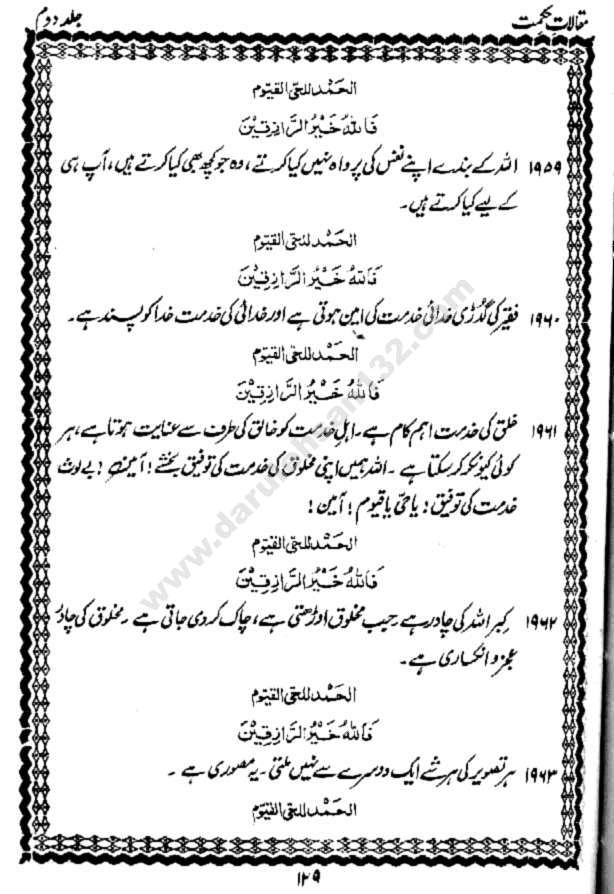 مقالاتِ حکمت
جلد دوم
الحمد للحی القیوم
فَاللهُ خَيْرُ الرَّازِقِيْنَ
۱۹۵۹ اللہ کے بندے اپنے نفس کی پرواہ نہیں کیا کرتے، وہ جو کچھ بھی کیا کرتے ہیں، آپ ہی
کے لیے کیا کرتے ہیں۔
الحمد للحی القیوم
فَاللهُ خَيْرُ الرَّازِقِيْنَ
۱۹۶۰ فقیر کی گدڑی خدائی خدمت کی امین ہوتی ہے اور خدائی کی خدمت خدا کو پسند ہے۔
الحمد للحی القیوم
فَاللهُ خَيْرُ الرَّازِقِيْنَ
۱۹۶۱ خلق کی خدمت اہم کام ہے۔ اہلِ خدمت کو خالق کی طرف سے عنایت ہوتا ہے، ہر
کوئی کیونکر کر سکتا ہے۔ اللہ ہمیں اپنی مخلوق کی خدمت کی توفیق بخشے! آمین! بے لوث
خدمت کی توفیق! یا حیّ یا قیوم! آمین!
الحمد للحی القیوم
فَاللهُ خَيْرُ الرَّازِقِيْنَ
۱۹۶۲ کبر اللہ کی چادر ہے۔ جب مخلوق اوڑھتی ہے، چاک کر دی جاتی ہے۔ مخلوق کی چادر
عجز و انکساری ہے۔
الحمد للحی القیوم
فَاللهُ خَيْرُ الرَّازِقِيْنَ
۱۹۶۳ ہر تصویر کی ہر شے ایک دوسرے سے نہیں ملتی۔ یہ مصوری ہے۔
الحمد للحی القیوم
۱۲۹